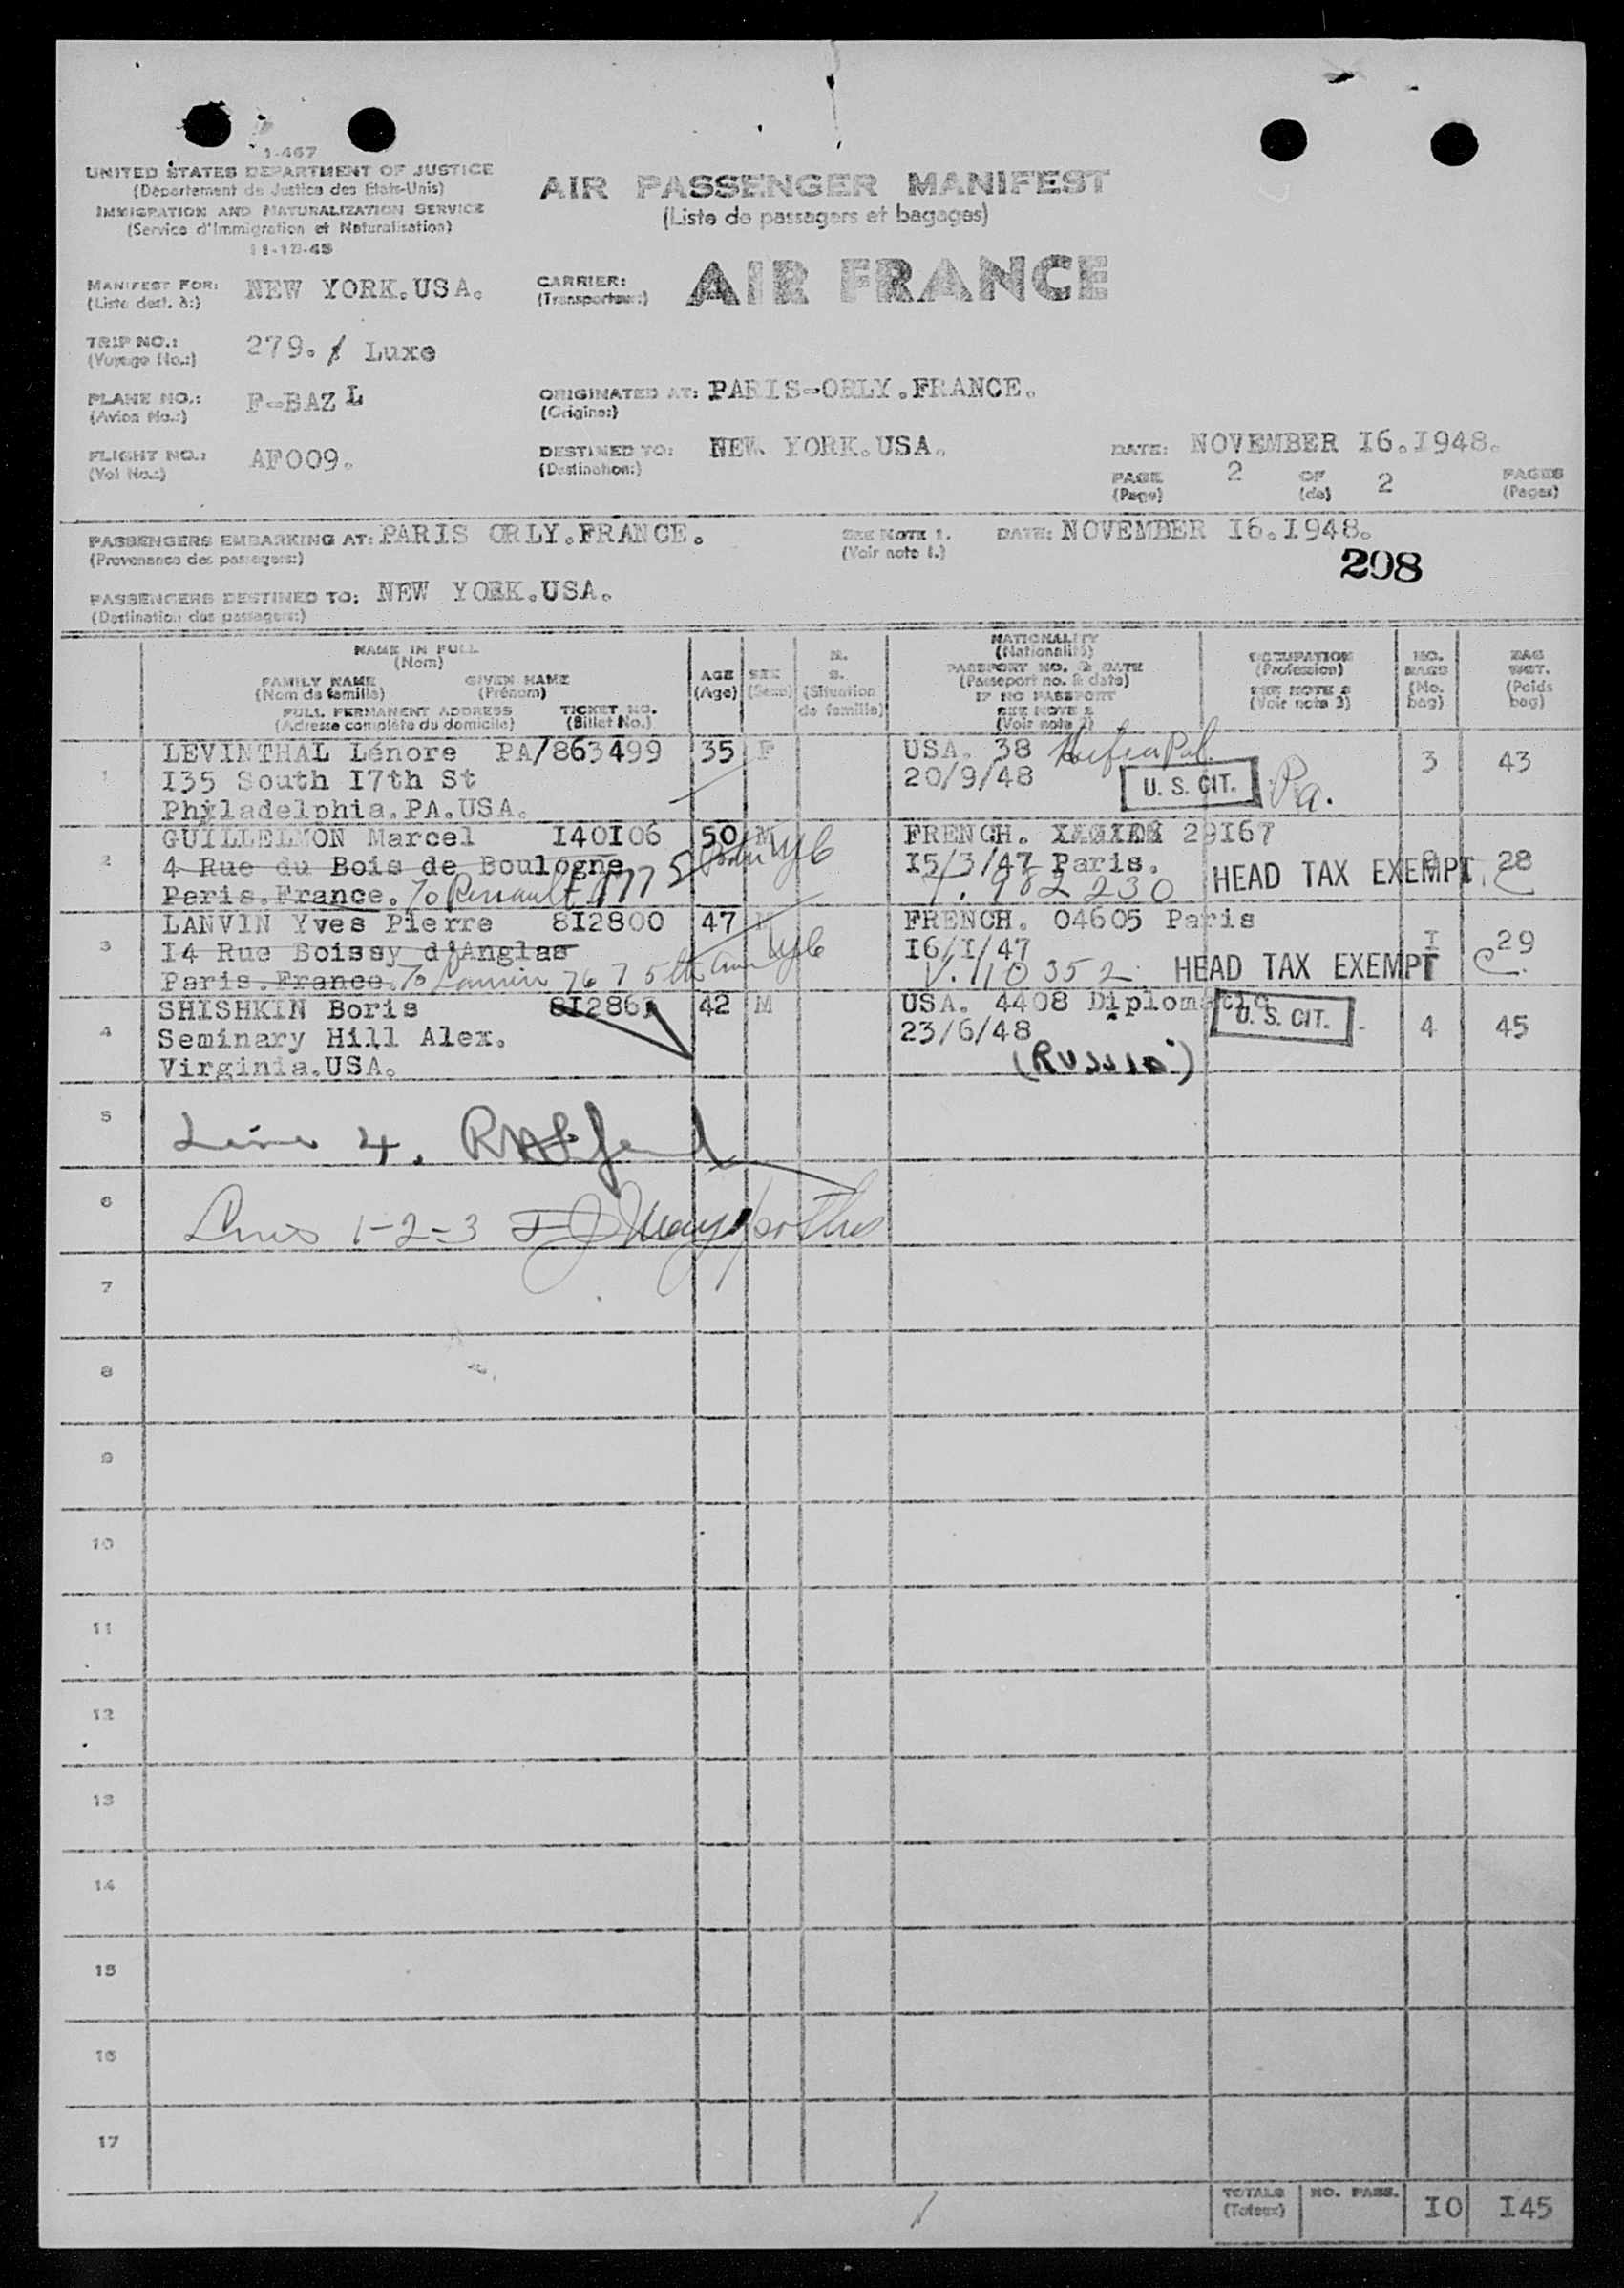 1-467
UNITED STATES DEPARTMENT OF JUSTICE
(Département de Justice des Etats-Unis)
IMMIGRATION AND NATURALIZATION SERVICE
(Service d'Immigration et Naturalisation)
11-12-45
AIR PASSENGER MANIFEST
(Liste de passagers et bagages)
MANIFEST FOR: NEW YORK.USA.
(Liste dest. à:)
CARRIER: AIR FRANCE
(Transporteur:)
TRIP NO.: 279. / Luxe
(Voyage No.:)
PLANE NO.: F-BAZ L
(Avion No.:)
ORIGINATED AT: PARIS-ORLY.FRANCE.
(Origine:)
FLIGHT NO.: AF009.
(Vol No.:)
DESTINED TO: NEW YORK.USA.
(Destination:)
DATE: NOVEMBER I6.I948.
PAGE 2 OF 2 PAGES
(Page) (de) (Pages)
PASSENGERS EMBARKING AT: PARIS ORLY.FRANCE.
(Provenance des passagers:)
SEE NOTE 1.
(Voir note 1.)
DATE: NOVEMBER I6.I948.
208
PASSENGERS DESTINED TO: NEW YORK.USA.
(Destination des passagers:)
NAME IN FULL
(Nom)
FAMILY NAME GIVEN NAME
(Nom de famille) (Prénom)
FULL PERMANENT ADDRESS TICKET NO.
(Adresse complète du domicile) (Billet No.)
AGE
(Age)
SEX
(Sexe)
M.
S.
(Situation
de famille)
NATIONALITY
(Nationalité)
PASSPORT NO. & DATE
(Passeport no. & date)
IF NO PASSPORT
SEE NOTE 2
(Voir note 2)
OCCUPATION
(Profession)
SEE NOTE 3
(Voir note 3)
NO.
BAGS
(No.
bag)
BAG
WGT.
(Poids
bag)
1 LEVINTHAL Lénore PA/863499 35 F USA. 38 Pa. 3 43
I35 South I7th St 20/9/48 U. S. CIT.
Philadelphia.PA.USA.
2 GUILLELMON Marcel I40I06 50 M FRENCH. 29I67
4 Rue du Bois de Boulogne I5/3/47 Paris. HEAD TAX EXEMPT 28
Paris.France. To Renault 982230
3 LANVIN Yves Pierre 8I2800 47 M FRENCH. 04605 Paris
I4 Rue Boissy d'Anglas I6/I/47 I 29
Paris.France. To Lanvin 767 5th Ave NYC V. 110352 HEAD TAX EXEMPT
4 SHISHKIN Boris 42 M USA. 4408 Diplomatic
Seminary Hill Alex. 23/6/48 U. S. CIT. 4 45
Virginia.USA. (RUSSIA)
5 Line 4.
6 Lines 1-2-3
7
8
9
10
11
12
13
14
15
16
17
TOTALS NO. PASS. I0 I45
(Totaux)